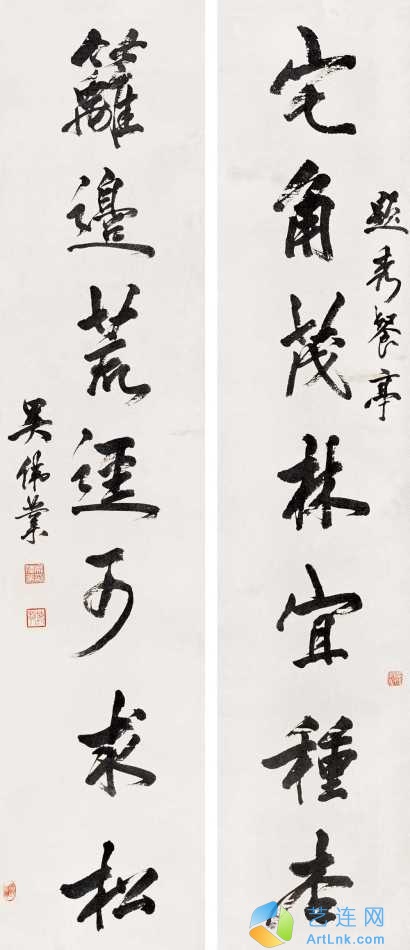 題秀餐亭
宅角茂林宜種杏
籬邊荒逕可求松
吳偉業
艺连网
ArtLnk.com